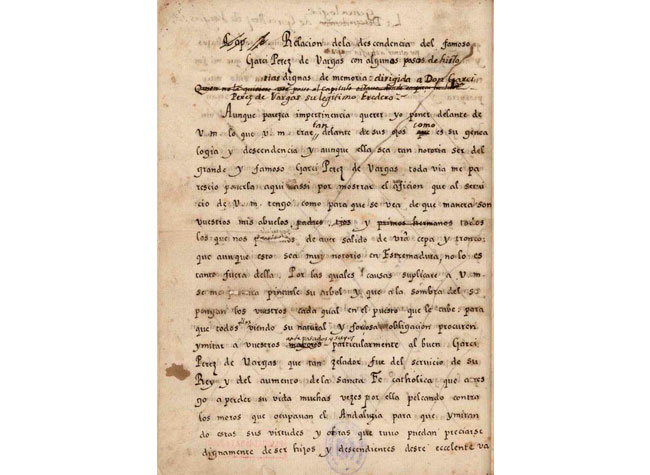 Relacion dela descendencia del famoso
Garci Perez de Vargas con algunas pasos de histo
rias dignas de memoria: dirigida a Don Garci
Perez de Vargas su legitimo Eredero
Aunque paresca impertinencia querer yo poner delante de
V.m. lo que V.m. trae tan delante de sus ojos como es su genea
logia y descendencia y aunque ella sea tan notoria ser del
grande y famoso Garci Perez de Vargas toda via me pa
rescio ponerla aqui assi por mostrar el aficion que al servi
cio de V.m. tengo como para que se vea de que manera son
vuestros mis abuelos padres, tios y primos hermanos todos
los que nos de aver salido de vra cepa y tronco;
que aunque esto sea muy notorio en Estremadura, no lo es
tanto fuera della. Por las quales causas suplicare a V.m
se me pintarle su arbol y que a la sombra del se
pongan los vuestros cada qual en el puesto que le cabe. para
que todos ellos viendo su natural y forçosa obligacion procuren
ymitar a vuestros antepasados y suyos particularmente al buen Garci
Perez de Vargas que tan zelador fue del servicio de su
Rey y del aumento dela sancta Fe catholica que arres
go a perder su vida muchas vezes por ella peleando contra
los moros que ocupavan el Andaluzia para que ymitan
do estas sus virtudes y obras que tuvo puedan preciarse
dignamente de ser hijos y descendientes deste ecelente va